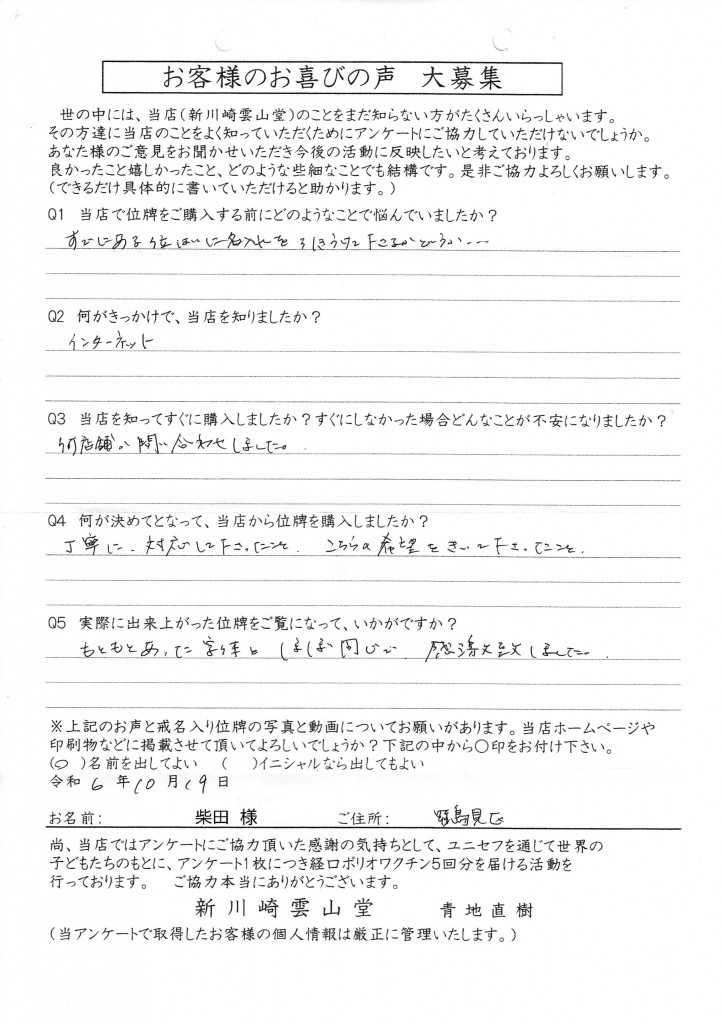 お客様のお喜びの声　大募集
世の中には、当店(新川崎雲山堂)のことをまだ知らない方がたくさんいらっしゃいます。
その方達に当店のことをよく知っていただくためにアンケートにご協力していただけないでしょうか。
あなた様のご意見をお聞かせいただき今後の活動に反映したいと考えております。
良かったこと嬉しかったこと、どのような些細なことでも結構です。是非ご協力よろしくお願いします。
(できるだけ具体的に書いていただけると助かります。)
Q1　当店で位牌をご購入する前にどのようなことで悩んでいましたか？
すでにある位はいに名入れを引きうけて下さるかどうか…
Q2　何がきっかけで、当店を知りましたか？
インターネット
Q3　当店を知ってすぐに購入しましたか？すぐにしなかった場合どんなことが不安になりましたか？
何店舗か問い合わせしました。
Q4　何が決めてとなって、当店から位牌を購入しましたか？
丁寧に、対応して下さったこと、こちらの希望をきいて下さったこと。
Q5　実際に出来上がった位牌をご覧になって、いかがですか？
もともとあった字体とほぼ同じで、感激致しました。
※上記のお声と戒名入り位牌の写真と動画についてお願いがあります。当店ホームページや
印刷物などに掲載させて頂いてよろしいでしょうか？下記の中から〇印をお付け下さい。
(○)名前を出してよい　(　)イニシャルなら出してもよい
令和 6 年 10 月 19 日
お名前：　柴田 様　ご住所：
尚、当店ではアンケートにご協力頂いた感謝の気持ちとして、ユニセフを通じて世界の
子どもたちのもとに、アンケート1枚につき経口ポリオワクチン5回分を届ける活動を
行っております。　ご協力本当にありがとうございます。
新川崎雲山堂　青地直樹
(当アンケートで取得したお客様の個人情報は厳正に管理いたします。)